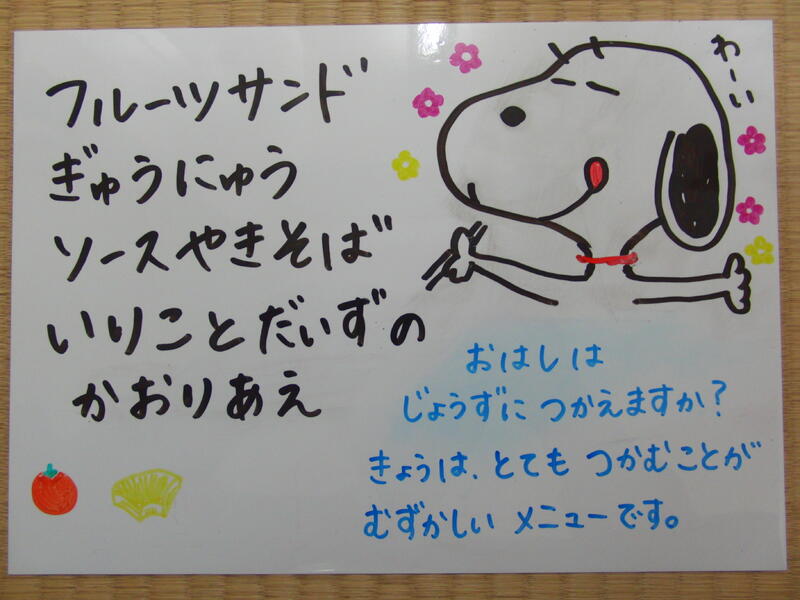 フルーツサンド
ぎゅうにゅう
ソースやきそば
いりことだいずの
かおりあえ
わーい
おはしは
じょうずに つかえますか?
きょうは、とても つかむことが
むずかしい メニューです。